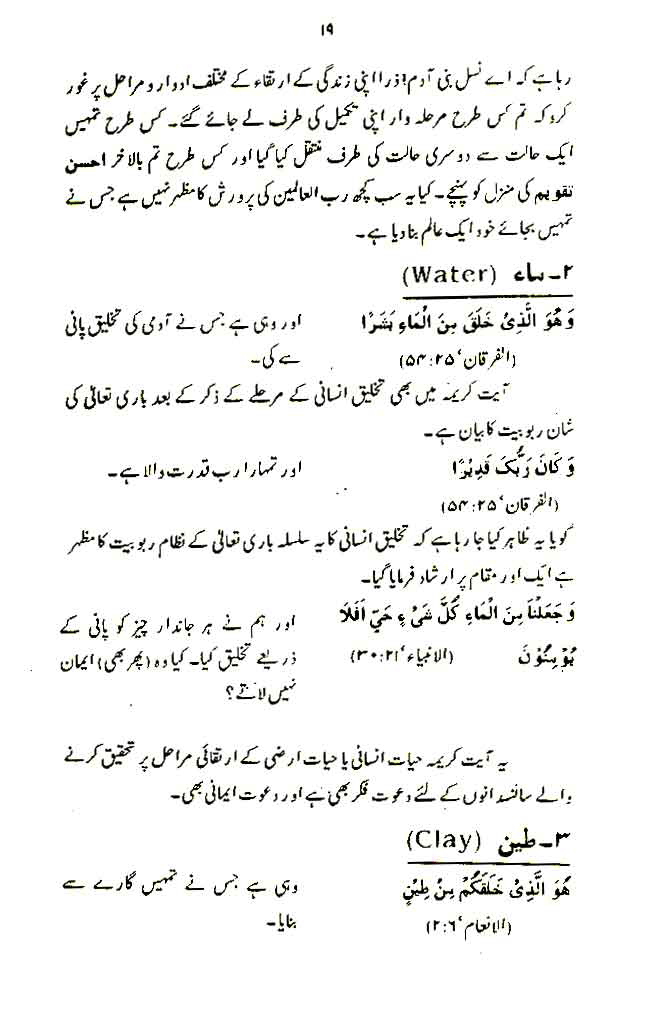 ۱۹
رہا ہے کہ اے نسل بنی آدم! ذرا اپنی زندگی کے ارتقاء کے مختلف ادوار و مراحل پر غور
کرو کہ تم کس طرح مرحلہ وار اپنی تکمیل کی طرف لے جائے گئے۔ کس طرح تمہیں
ایک حالت سے دوسری حالت کی طرف منتقل کیا گیا اور کس طرح تم بالاخر احسن
تقویم کی منزل کو پہنچے۔ کیا یہ سب کچھ رب العالمین کی پرورش کا مظہر نہیں ہے جس نے
تمہیں بجائے خود ایک عالم بنا دیا ہے۔
۲۔ ماء (Water)
وَ هُوَ الَّذِیْ خَلَقَ مِنَ الْمَاءِ بَشَرًا
(الفرقان، ۲۵:۵۴)
اور وہی ہے جس نے آدمی کی تخلیق پانی
سے کی۔
آیت کریمہ میں بھی تخلیق انسانی کے مرحلے کے ذکر کے بعد باری تعالیٰ کی
شان ربوبیت کا بیان ہے۔
وَ کَانَ رَبُّکَ قَدِیْرًا
(الفرقان، ۲۵:۵۴)
اور تمہارا رب قدرت والا ہے۔
گویا یہ ظاہر کیا جا رہا ہے کہ تخلیق انسانی کا یہ سلسلہ باری تعالیٰ کے نظام ربوبیت کا مظہر
ہے ایک اور مقام پر ارشاد فرمایا گیا۔
وَ جَعَلْنَا مِنَ الْمَاءِ کُلَّ شَیْءٍ حَیٍّ اَفَلَا
یُؤْمِنُوْنَ (الانبیاء، ۲۱:۳۰)
اور ہم نے ہر جاندار چیز کو پانی کے
ذریعے تخلیق کیا۔ کیا وہ (پھر بھی) ایمان
نہیں لاتے؟
یہ آیت کریمہ حیات انسانی یا حیات ارضی کے ارتقائی مراحل پر تحقیق کرنے
والے سائنسدانوں کے لئے دعوت فکر بھی ہے اور دعوت ایمانی بھی۔
۳۔ طین (Clay)
هُوَ الَّذِیْ خَلَقَکُمْ مِنْ طِیْنٍ
(الانعام، ۶:۲)
وہی ہے جس نے تمہیں گارے سے
بنایا۔